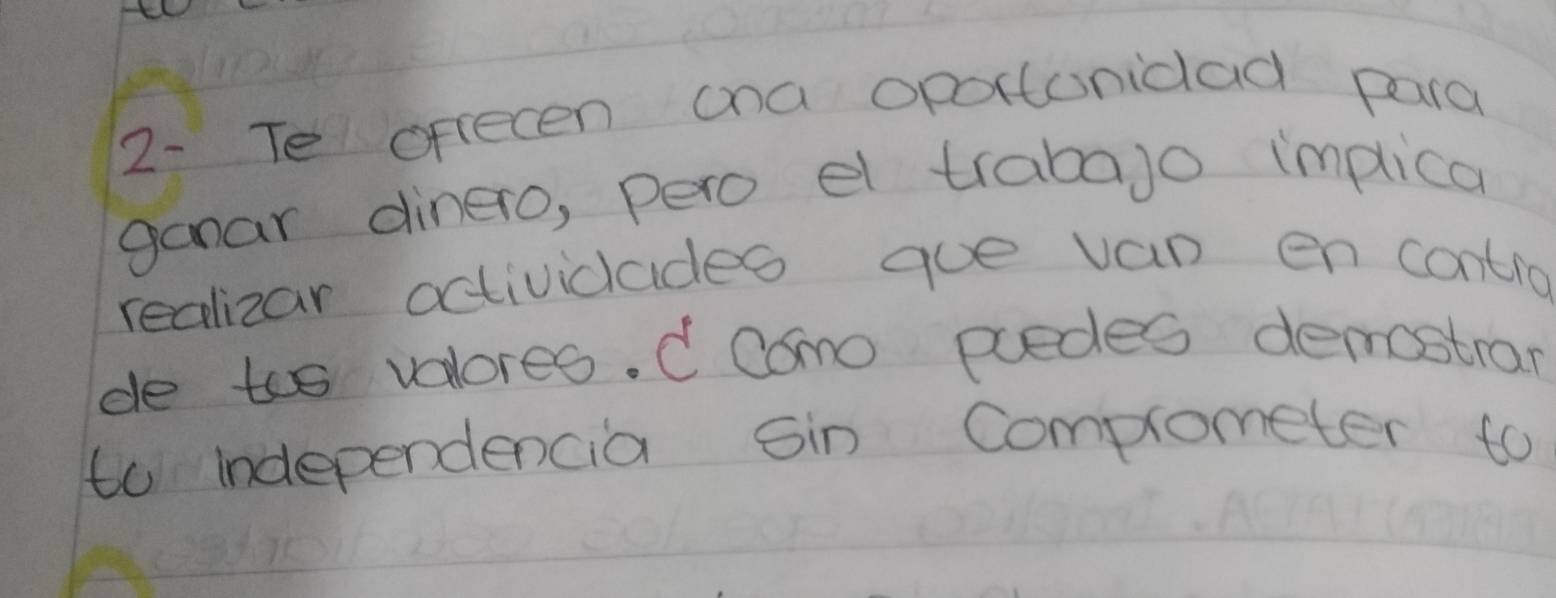 2- Te ofrecen una oportunidad para
ganar dinero, pero el trabajo implica
realizar actividades que van en contra
de tus valores. ¿ Cómo puedes demostrar
tu independencia sin comprometer tu